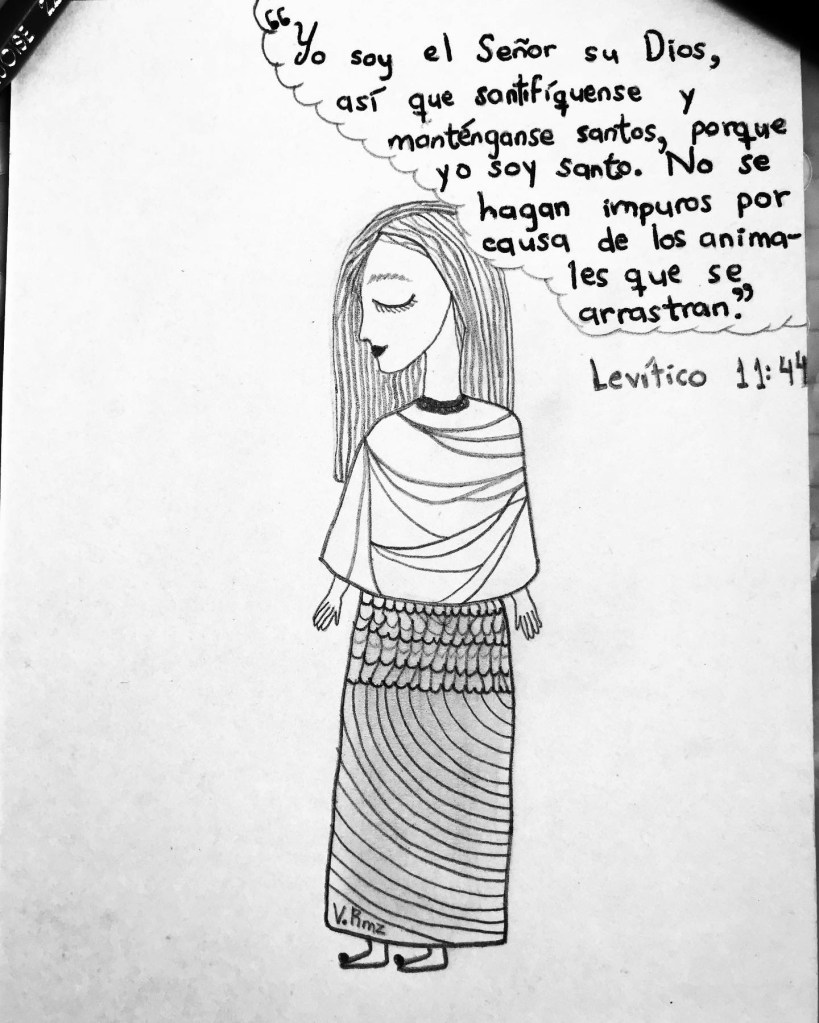 “Yo soy el Señor su Dios,
así que santifíquense y
manténganse santos, porque
yo soy santo. No se
hagan impuros por
causa de los anima-
les que se
arrastran.”
Levítico 11:44
V.Rmz